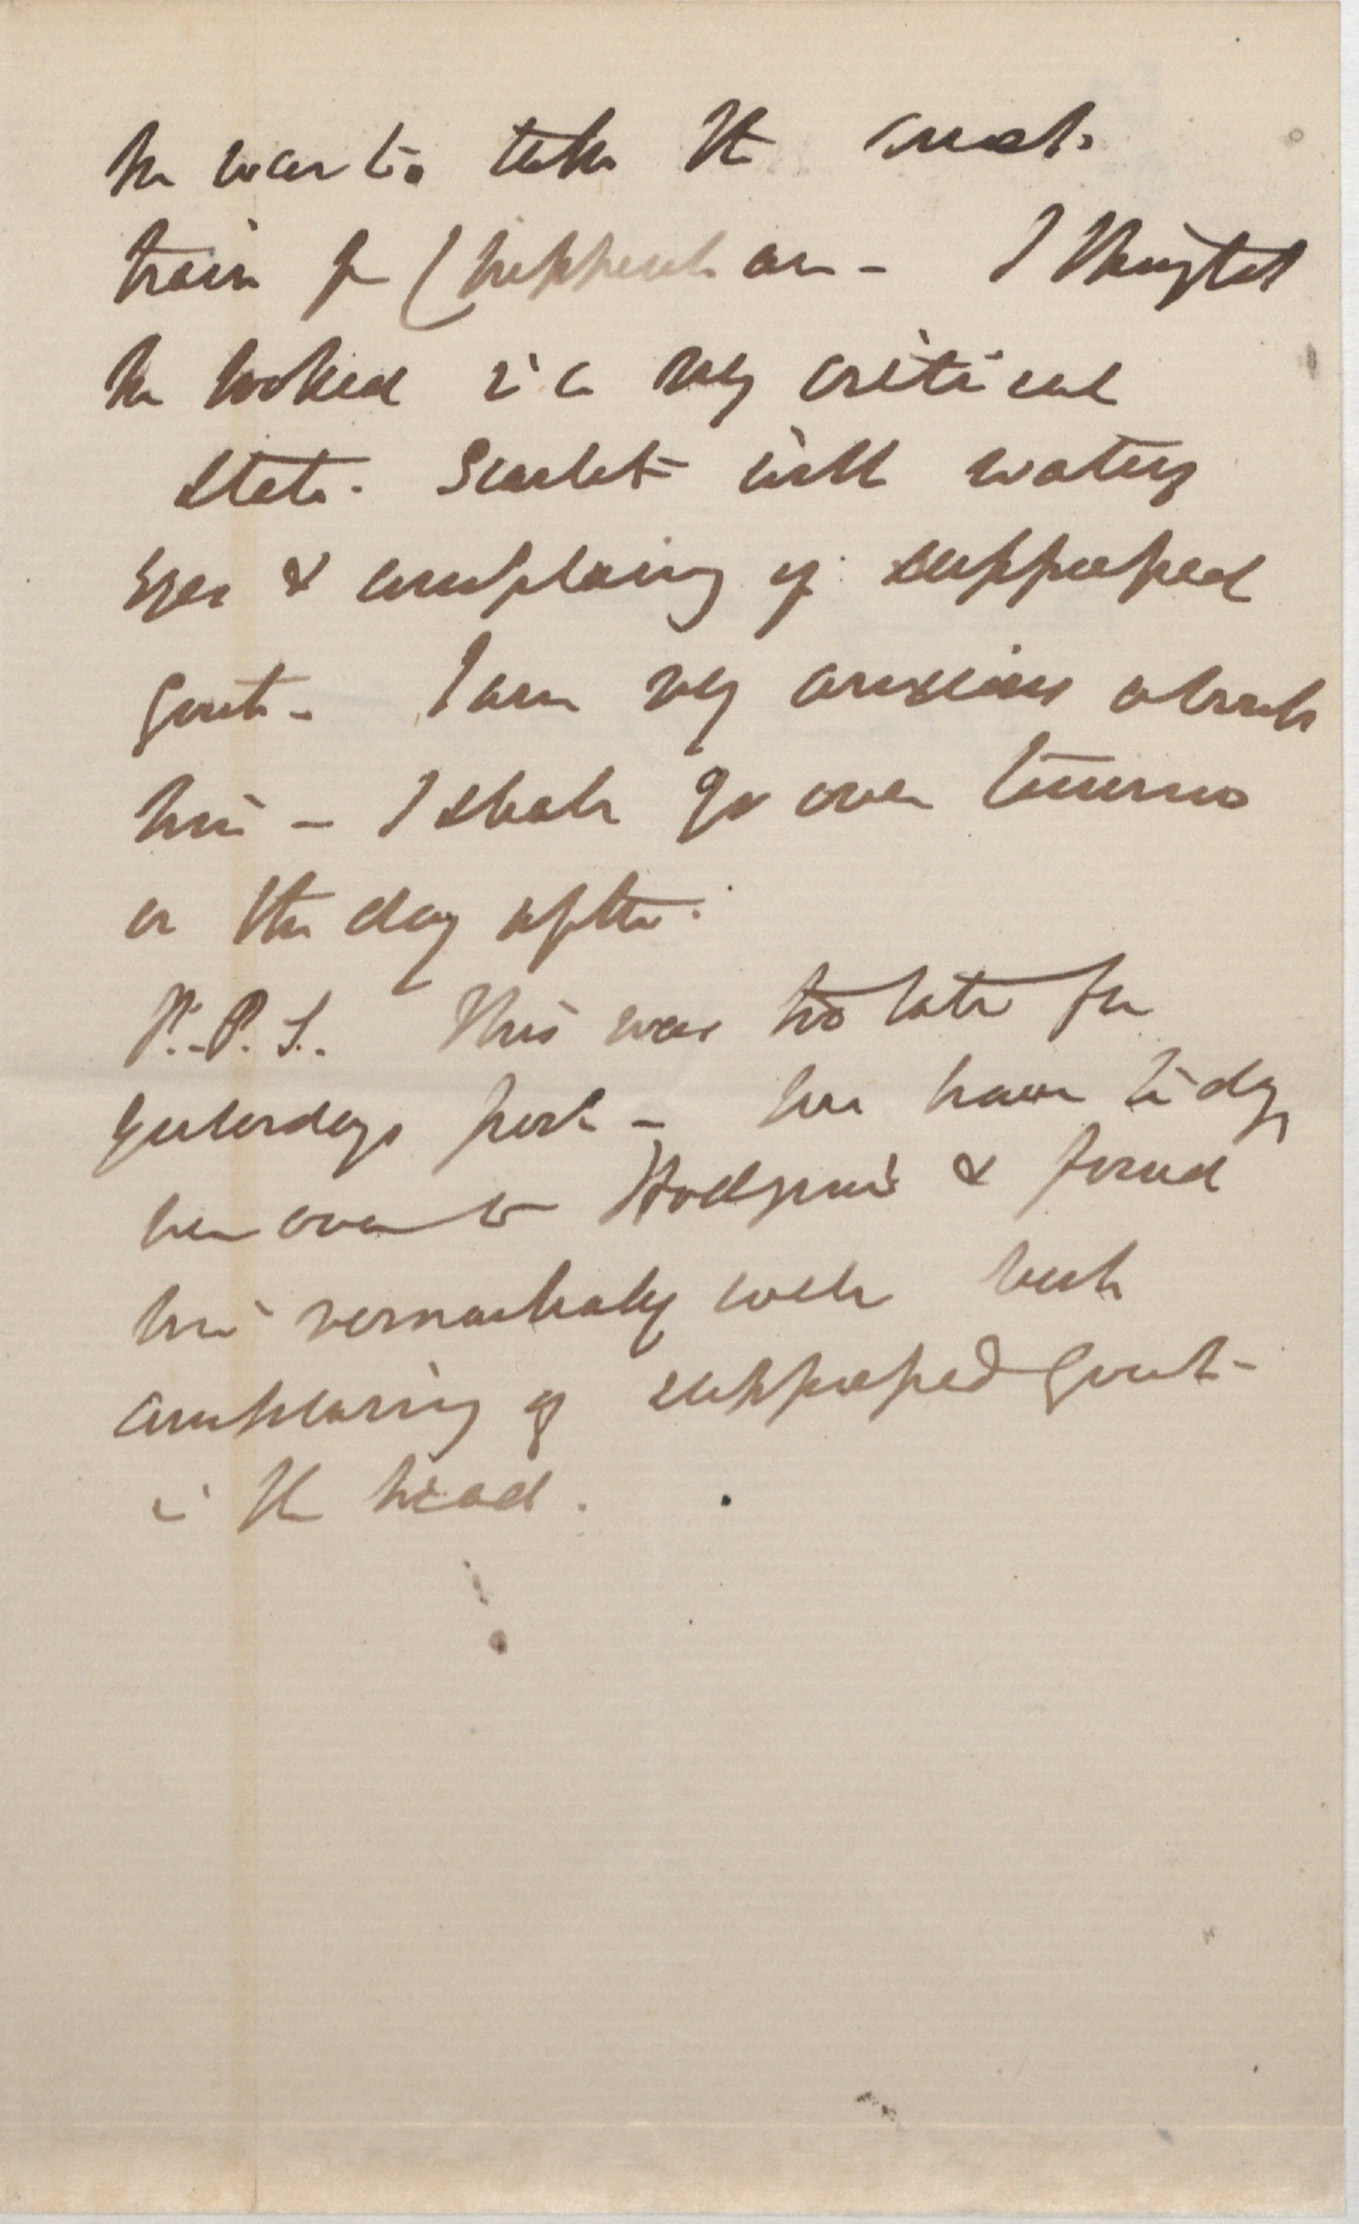 he was to take the next
train for Chippenham - I thought
he looked in a very critical
state. Scarlet with watery
eyes & complaining of suppressed
gout - I am very anxious about
him - I shall go over tomorrow
or the day after.
P.P.S. This was too late for
yesterdays post - We have today
been over to Hodgson's & found
him remarkably well but
complaining of suppressed gout -
in the head.